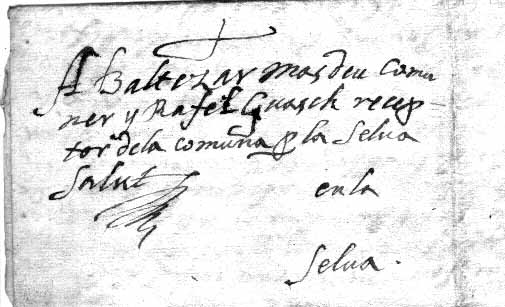 A Baltezar masdeu comu
ner y Rafel Guasch recep-
tor dela comuna p la Selva
Salut
en la
Selva.